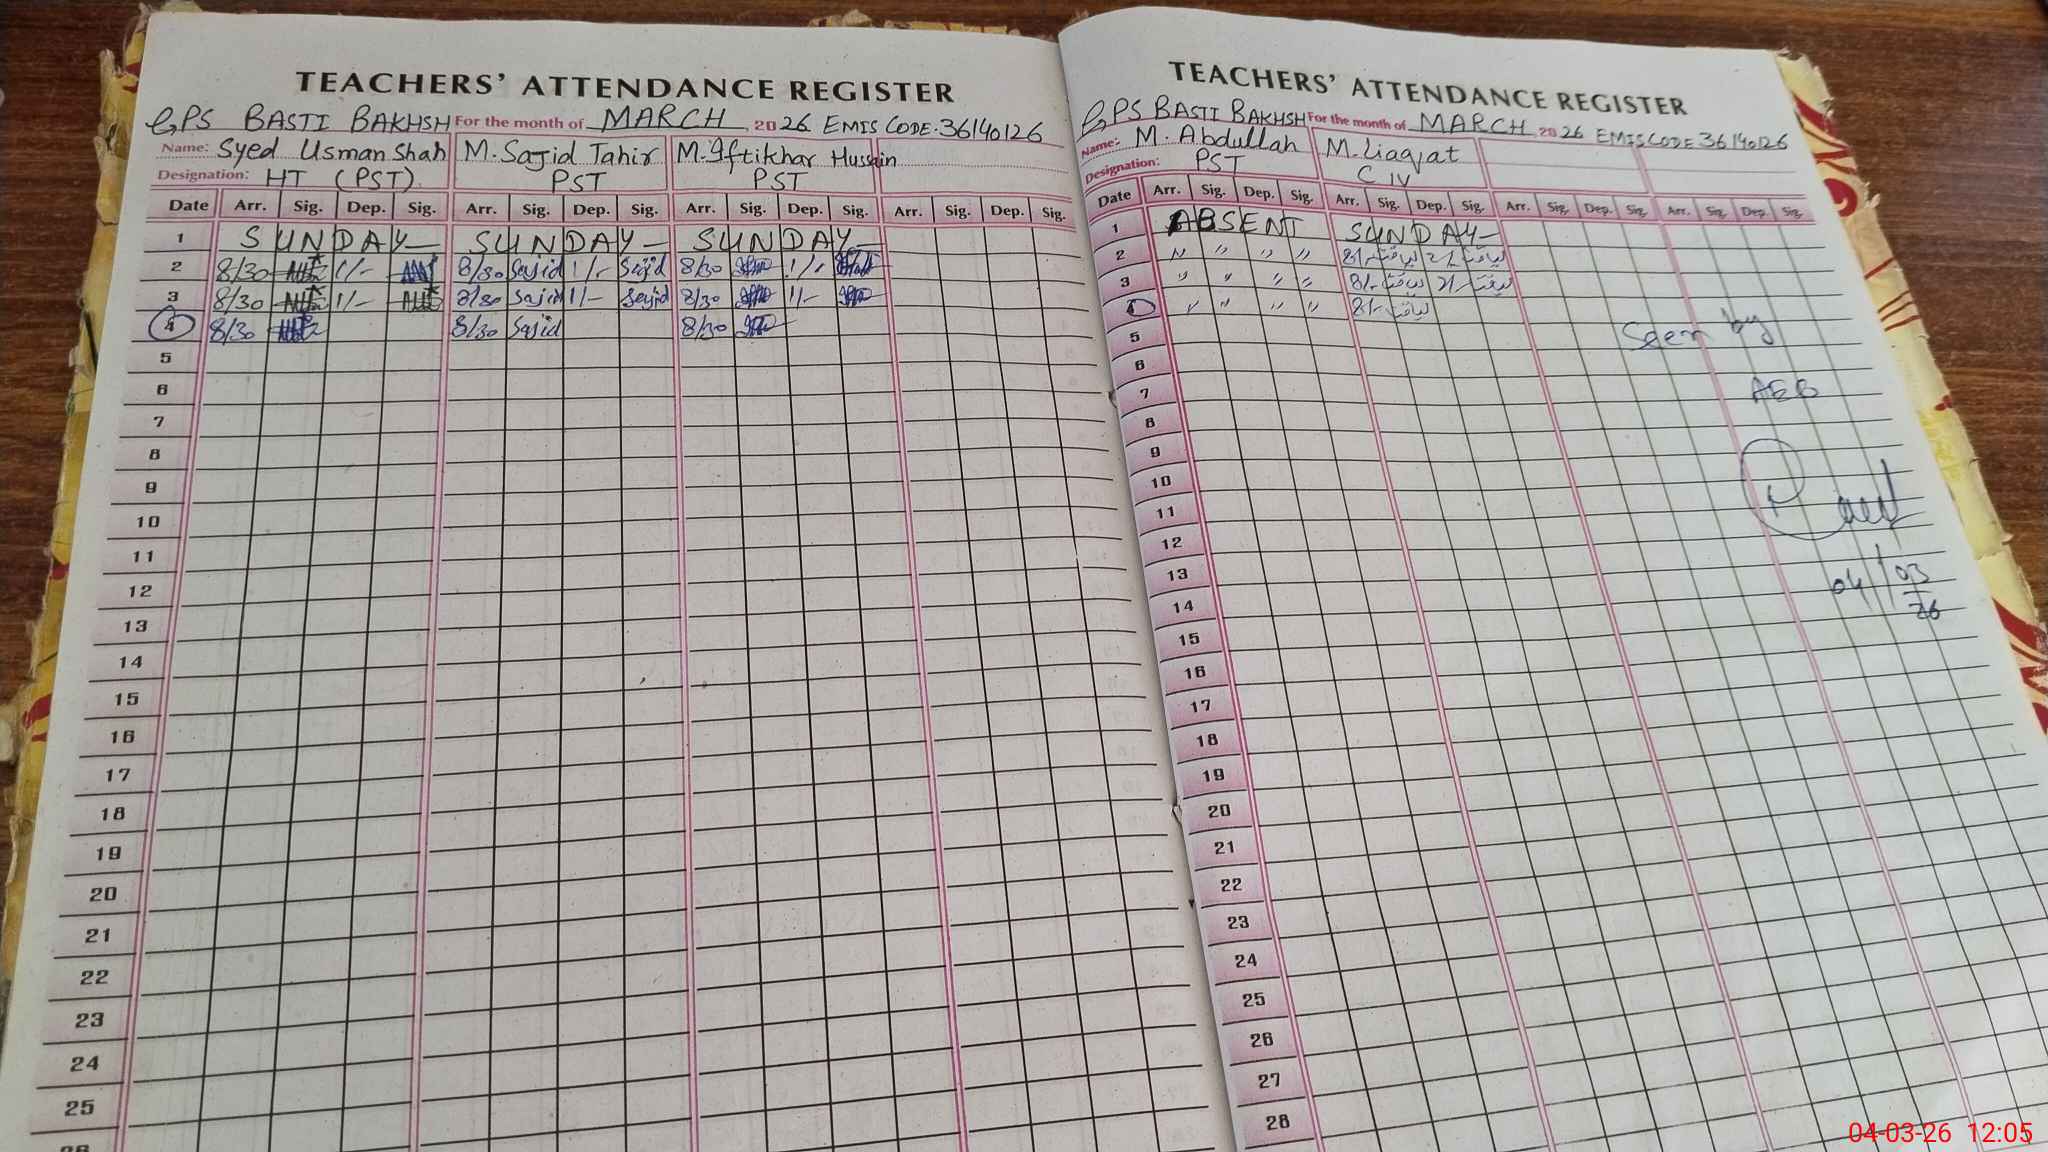 TEACHERS' ATTENDANCE REGISTER
GPS BASTI BAKHSH For the month of MARCH 2026 EMIS CODE. 36140126
Name: Syed Usman Shah M. Sajid Tahir M. Iftikhar Hussain
Designation: HT (PST) PST PST
Date Arr. Sig. Dep. Sig. Arr. Sig. Dep. Sig. Arr. Sig. Dep. Sig. Arr. Sig. Dep. Sig.
1 SUNDAY SUNDAY SUNDAY
2 8/30 1/- 8/30 Sajid 1/- Sajid 8/30 1/-
3 8/30 1/- 8/30 Sajid 1/- Sajid 8/30 1/-
4 8/30 8/30 Sajid 8/30
5
6
7
8
9
10
11
12
13
14
15
16
17
18
19
20
21
22
23
24
25
TEACHERS' ATTENDANCE REGISTER
GPS BASTI BAKHSH For the month of MARCH 2026 EMIS CODE 36140126
Name: M. Abdullah M. Liaqat
Designation: PST C IV
Date Arr. Sig. Dep. Sig. Arr. Sig. Dep. Sig. Arr. Sig. Dep. Sig. Arr. Sig. Dep. Sig.
1 ABSENT SUNDAY
2 " " " " 8/- لیاقت 2/- لیاقت
3 " " " " 8/- لیاقت 2/- لیاقت
4 " " " " 8/- لیاقت
5 Seen by
6
7 AEO
8
9
10
11
12
13 04/03/26
14
15
16
17
18
19
20
21
22
23
24
25
26
27
28
04-03-26 12:05